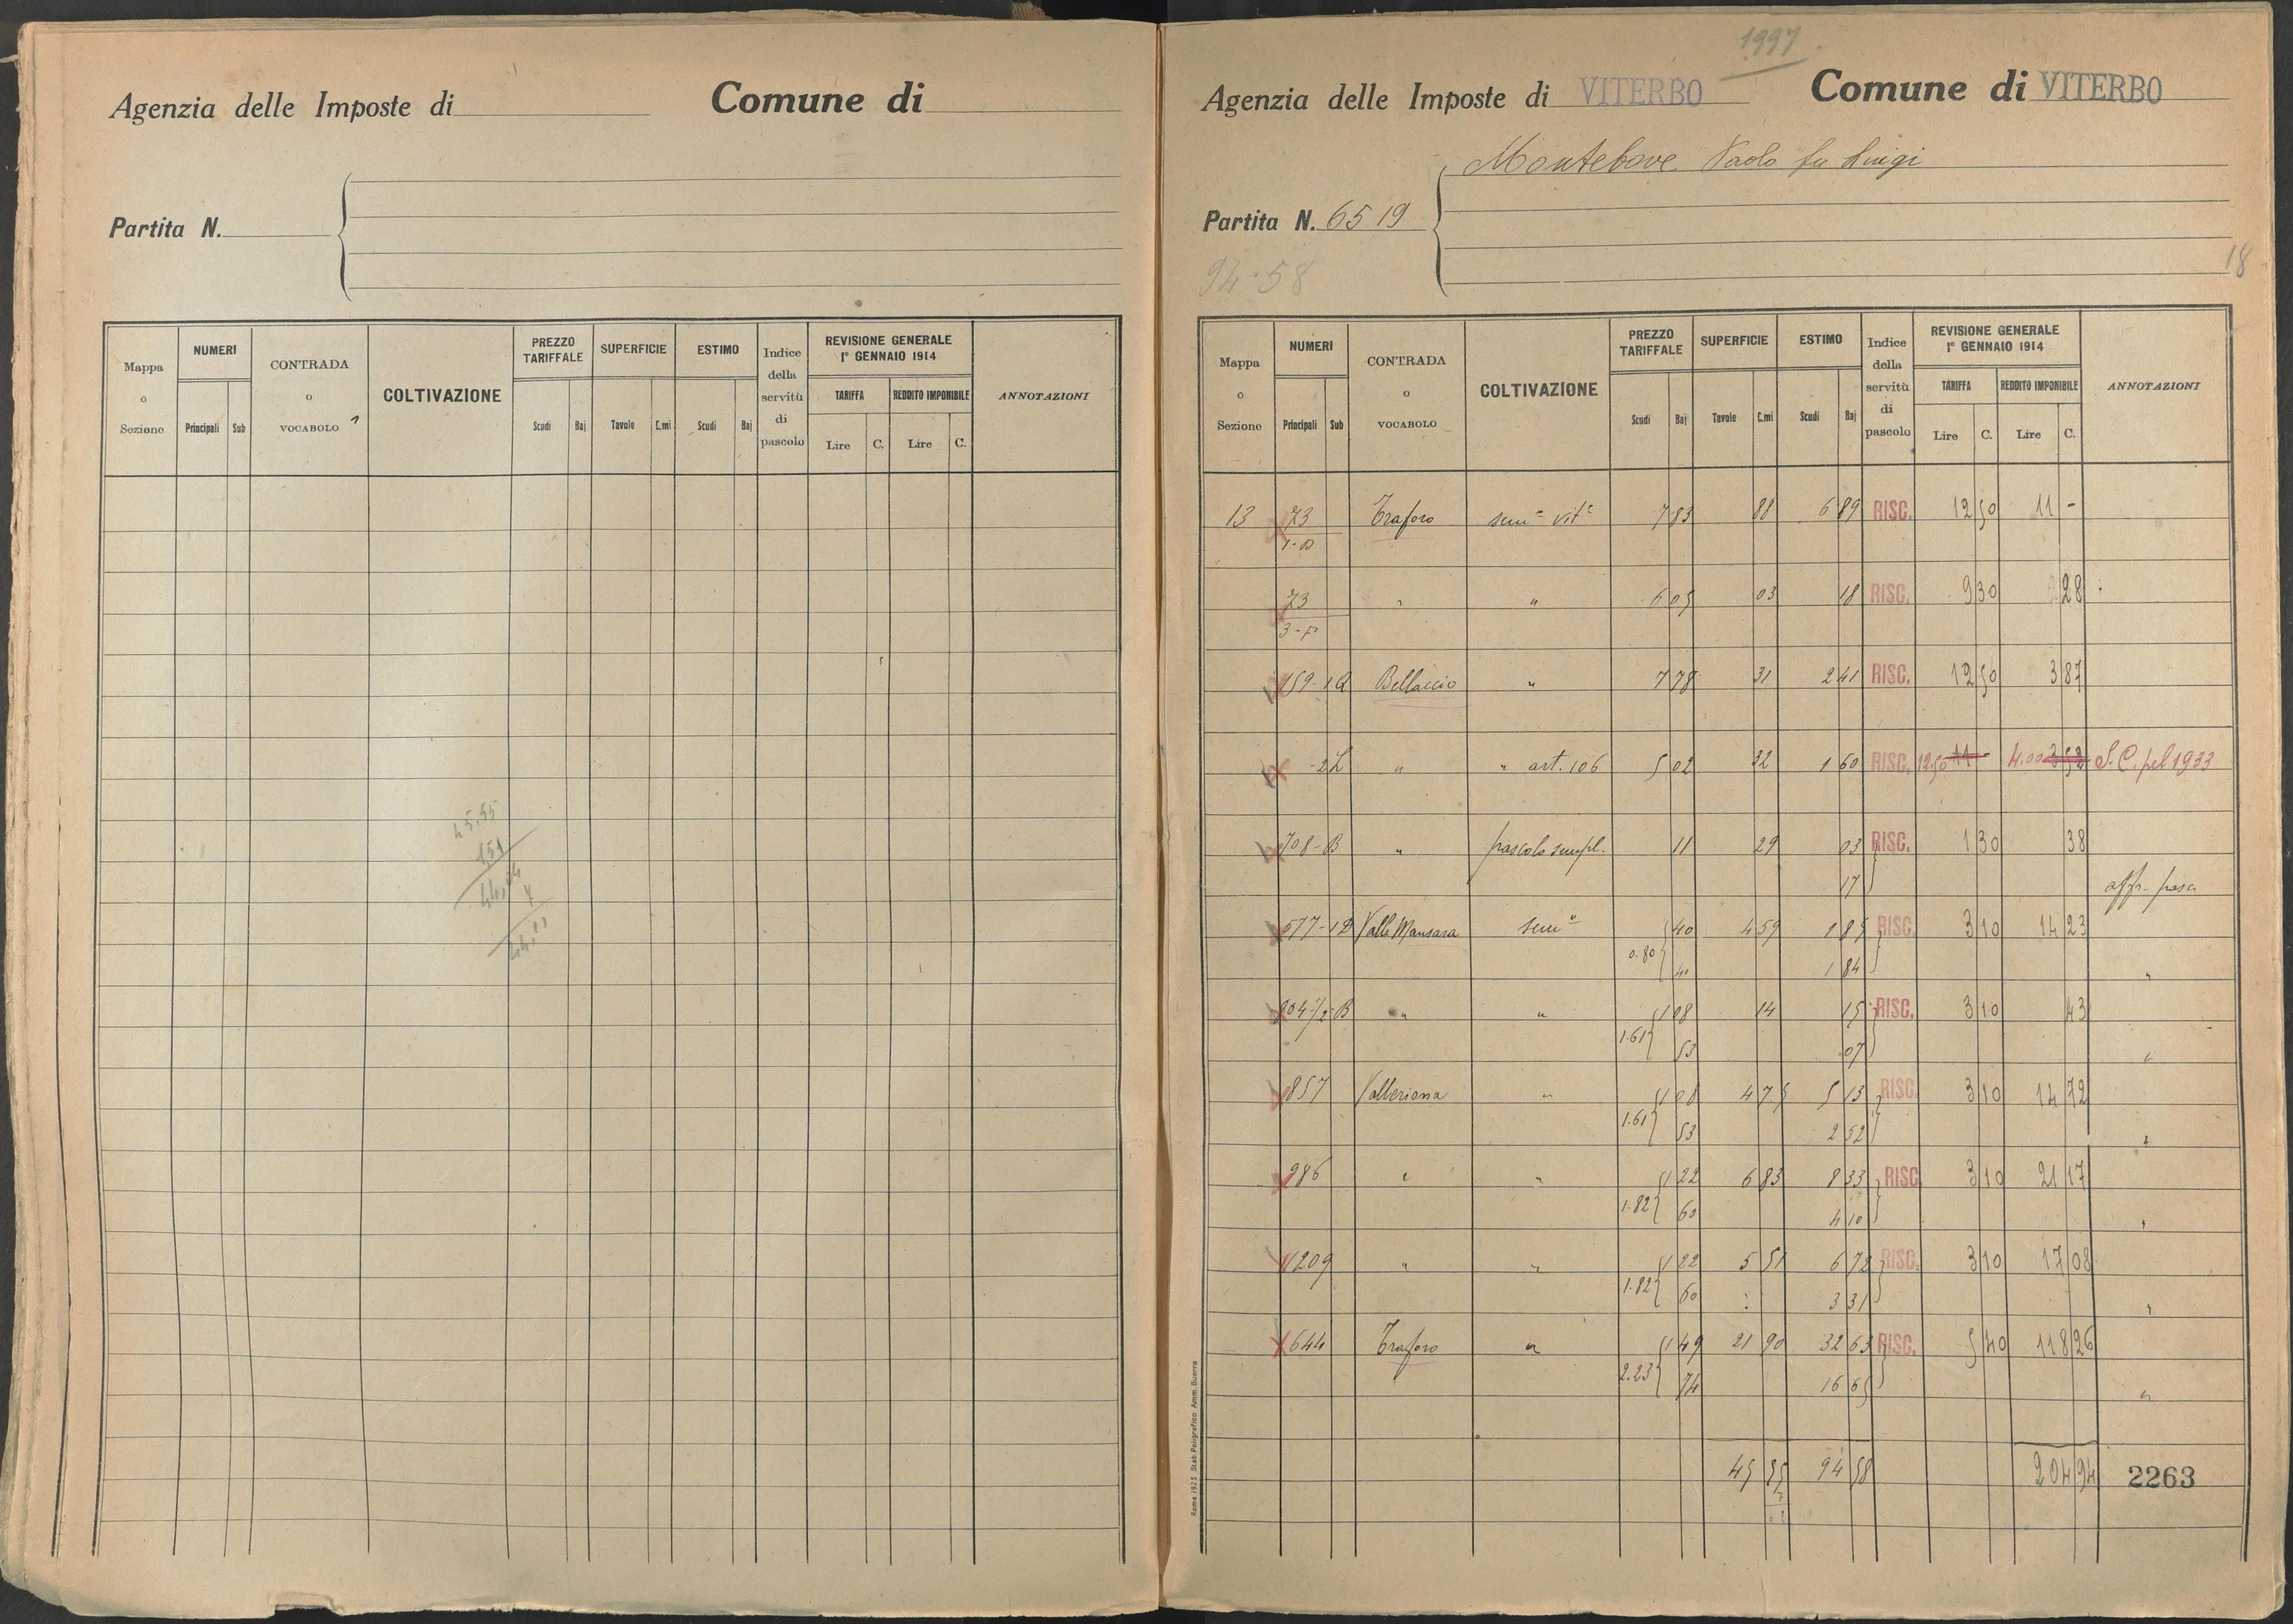 Agenzia delle Imposte di
Comune di
Partita N.
Mappa o Sezione
NUMERI
Principali Sub
CONTRADA o VOCABOLO
COLTIVAZIONE
PREZZO TARIFFALE
Scudi Baj
SUPERFICIE
Tavole C.mi
ESTIMO
Scudi Baj
Indice della servitù di pascolo
REVISIONE GENERALE
1° GENNAIO 1914
TARIFFA REDDITO IMPONIBILE
Lire C. Lire C.
ANNOTAZIONI
45.55
1997
Agenzia delle Imposte di VITERBO
Comune di VITERBO
Montebove Paolo fu Luigi
Partita N. 6519
18
94.58
Mappa o Sezione
NUMERI
Principali Sub
CONTRADA o VOCABOLO
COLTIVAZIONE
PREZZO TARIFFALE
Scudi Baj
SUPERFICIE
Tavole C.mi
ESTIMO
Scudi Baj
Indice della servitù di pascolo
REVISIONE GENERALE
1° GENNAIO 1914
TARIFFA REDDITO IMPONIBILE
Lire C. Lire C.
ANNOTAZIONI
13 73 Traforo sem° vit° 7 83 88 6 89 RISC. 12 50 11 -
73 " " 6 05 03 18 RISC. 9 30 28
3-F
159-1Q Bellaccio " 7 78 31 2 41 RISC. 12 50 3 87
-2L " " art. 106 5 02 32 1 60 RISC. 12,50 11 - 4.00 3 52 S.C. pel 1933
708-B " pascolo sempl. 11 29 03 RISC. 1 30 38
17 affr. pasc.
577-1D Valle Mansara sem° 40 4 59 1 85 RISC. 3 10 14 23
0.80 40 1 84 "
904 1/2-B " " 1 08 14 15 RISC. 3 10 43
1.61 53 07 "
857 Valleriana " 1 08 4 75 5 13 RISC. 3 10 14 72
1.61 53 2 52 "
986 " " 1 22 6 83 8 33 RISC. 3 10 21 17
1.82 60 4 10 "
1209 " " 1 22 5 51 6 72 RISC. 3 10 17 08
1.82 60 3 31 "
644 Traforo " 1 49 21 90 32 63 RISC. 5 40 118 26
2.23 74 16 65 "
45 55 94 58 204 94 2263
Roma 1923 Stab. Poligrafico Amm. Guerra